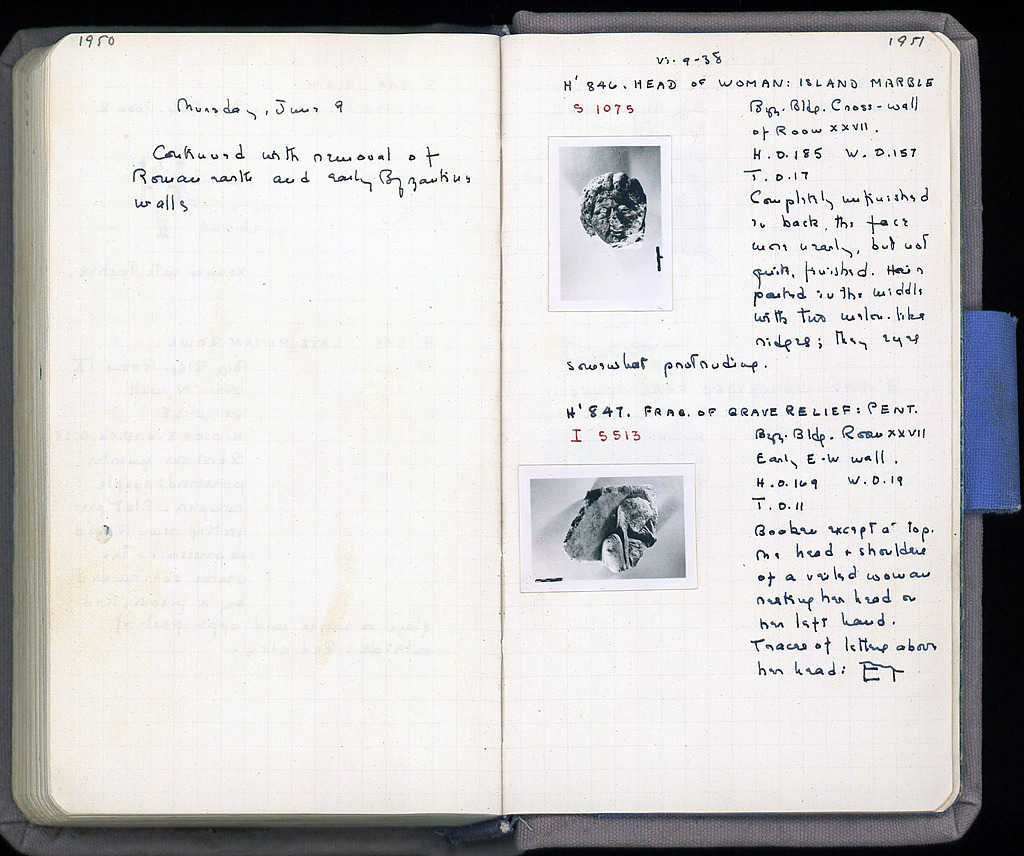 1950
Thursday, June 9
Continued with removal of
Roman earth and early Byzantine
walls
1951
VI-9-38
H' 846. HEAD OF WOMAN: ISLAND MARBLE
S 1075
Byz. Bldg. Cross-wall
of Room XXVII.
H. 0.185 W. 0.157
T. 0.17
Completely unfinished
in back, the face
more nearly, but not
quite, finished. Hair
parted in the middle
with two melon-like
ridges; the eyes
somewhat protruding.
H' 847. FRAG. OF GRAVE RELIEF: PENT.
I 5513
Byz. Bldg. Room XXVII
Early E-W wall.
H. 0.169 W. 0.19
T. 0.11
Broken except at top.
The head + shoulders
of a veiled woman
resting her head on
her left hand.
Traces of letters above
her head: